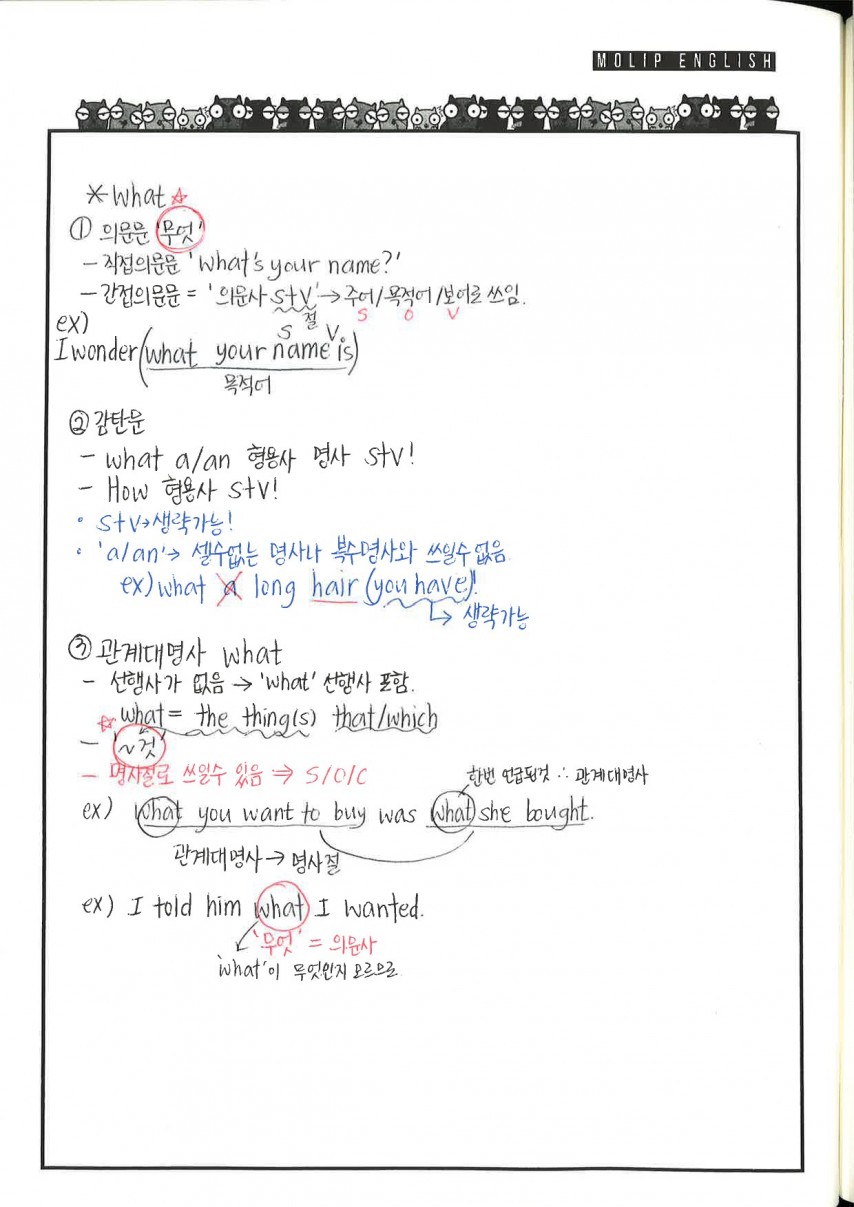 MOLIP ENGLISH
* What ☆
① 의문문 '무엇'
- 직접의문문 'what's your name?'
- 간접의문문 = '의문사 S+V' → 주어/목적어/보어로 쓰임.
절 S O V
ex) S V.
I wonder (what your name is)
목적어
② 감탄문
- what a/an 형용사 명사 S+V!
- How 형용사 S+V!
• S+V→생략가능!
• 'a/an'→ 셀수없는 명사나 복수명사와 쓰일수없음
ex) what a long hair (you have)!
↳ 생략가능
③ 관계대명사 what
- 선행사가 없음 → 'what' 선행사 포함.
☆ what = the thing(s) that/which
- '~것'
- 명사절로 쓰일수 있음 ⇒ S/O/C
한번 언급된것 ∴ 관계대명사
ex) What you want to buy was what she bought.
관계대명사 → 명사절
ex) I told him what I wanted.
'무엇' = 의문사
'what'이 무엇인지 모르므로